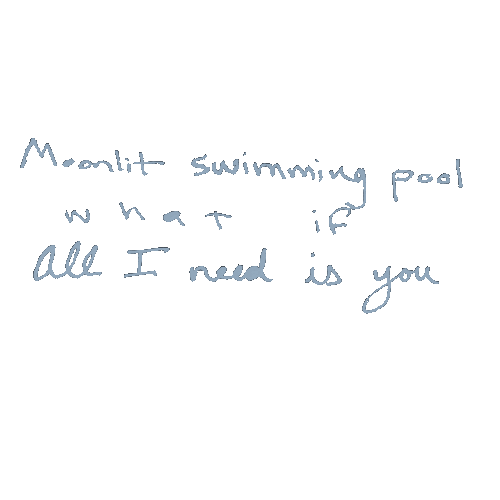 Moonlit swimming pool
what if
All I need is you